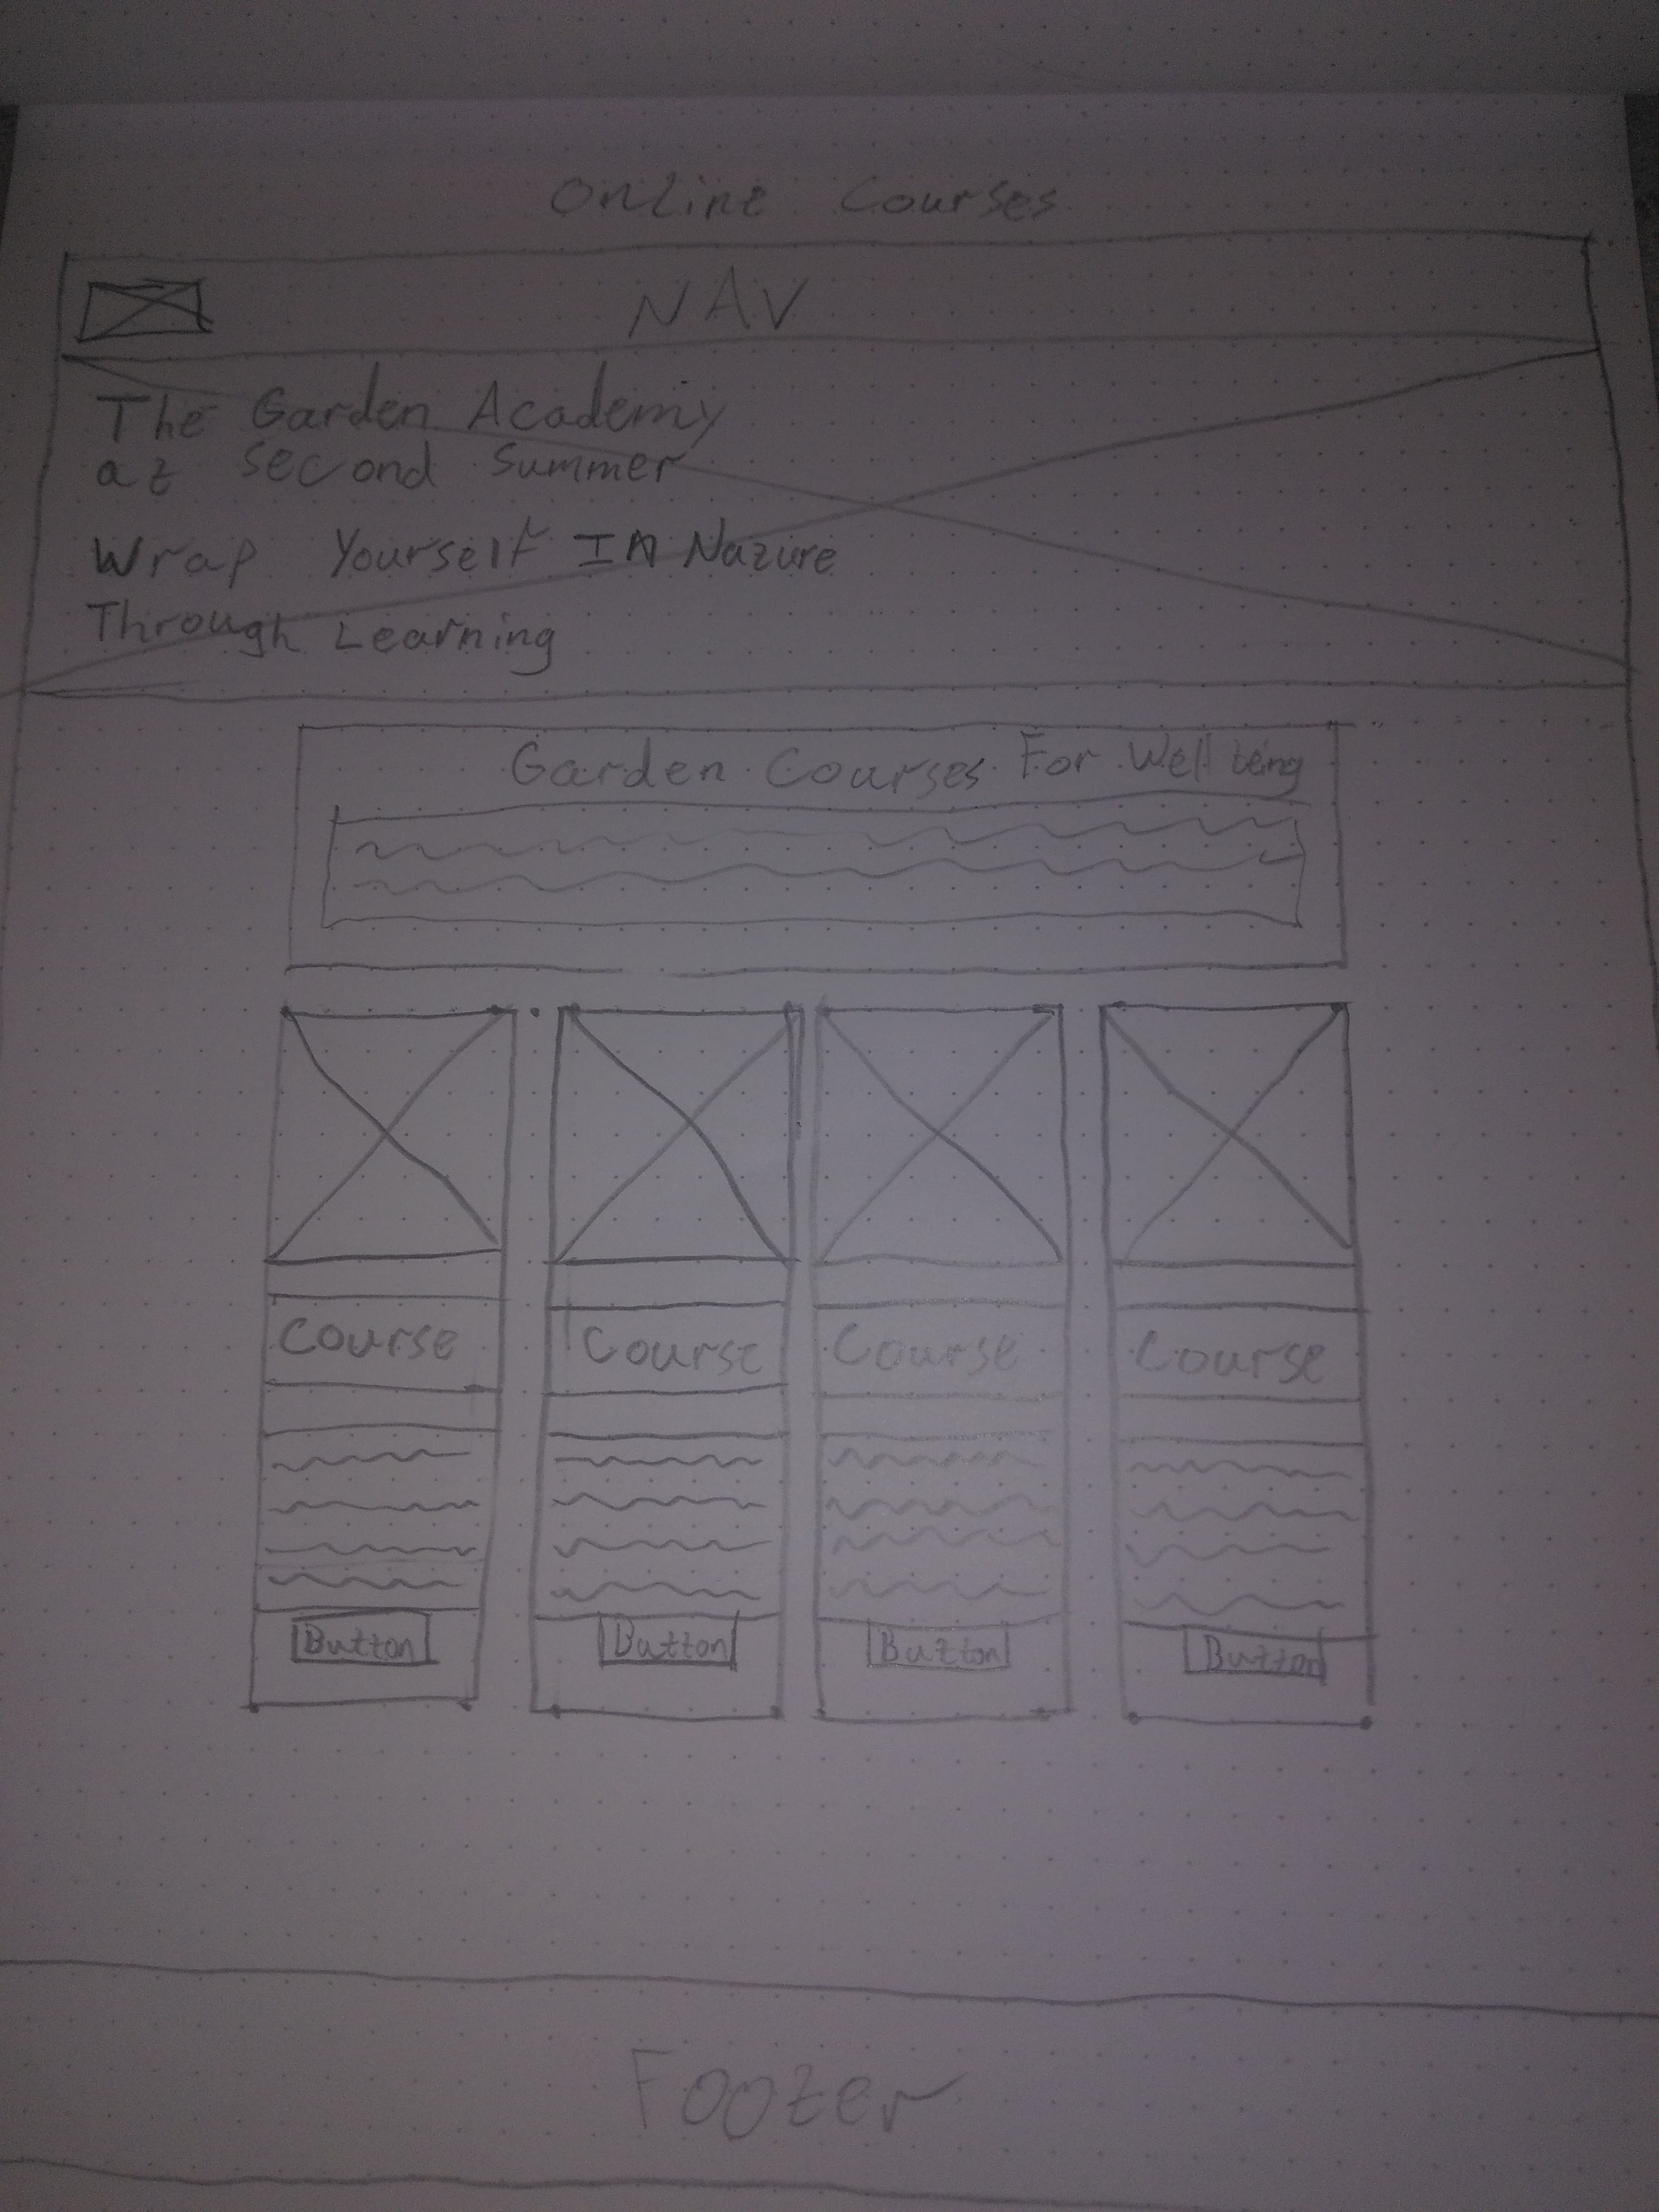 Online Courses
NAV
The Garden Academy
at Second Summer
Wrap Yourself In Nature
Through Learning
Garden Courses For Wellbeing
Course Course Course Course
Button Button Button Button
Footer